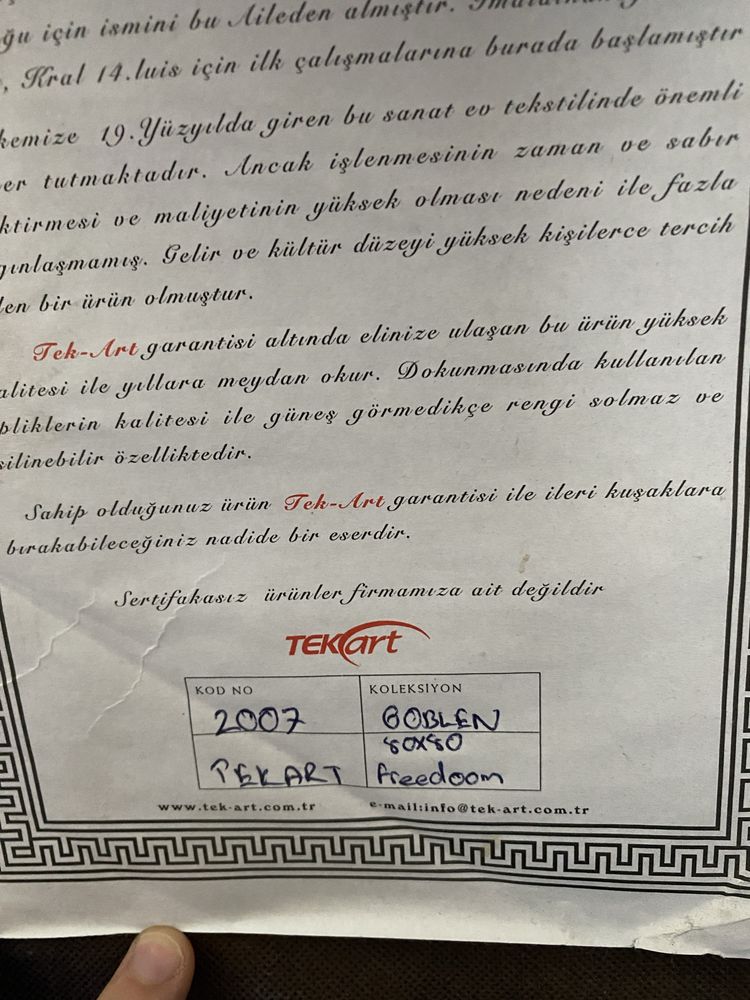 için ismini bu Aileden almıştır.
Kral 14.luis için ilk çalışmalarına burada başlamıştır
19.Yüzyılda giren bu sanat ev tekstilinde önemli
tutmaktadır. Ancak işlenmesinin zaman ve sabır
ve maliyetinin yüksek olması nedeni ile fazla
Gelir ve kültür düzeyi yüksek kişilerce tercih
bir ürün olmuştur.
Tek-Art garantisi altında elinize ulaşan bu ürün yüksek
ile yıllara meydan okur. Dokunmasında kullanılan
kalitesi ile güneş görmedikçe rengi solmaz ve
silinebilir özelliktedir.
Sahip olduğunuz ürün Tek-Art garantisi ile ileri kuşaklara
bırakabileceğiniz nadide bir eserdir.
Sertifakasız ürünler firmamıza ait değildir
TEKart
KOD NO KOLEKSİYON
2007 GOBLEN
80x80
TEKART freedoom
www.tek-art.com.tr e-mail:info@tek-art.com.tr